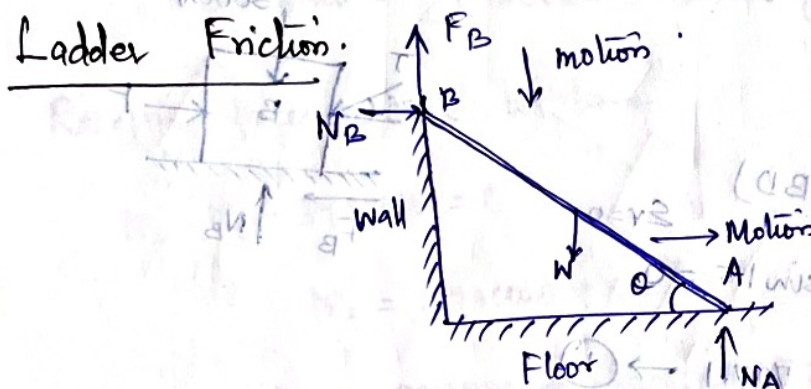 Ladder Friction.
F_B
motion.
B
N_B
Wall
Motion
W
θ
A
Floor
N_A